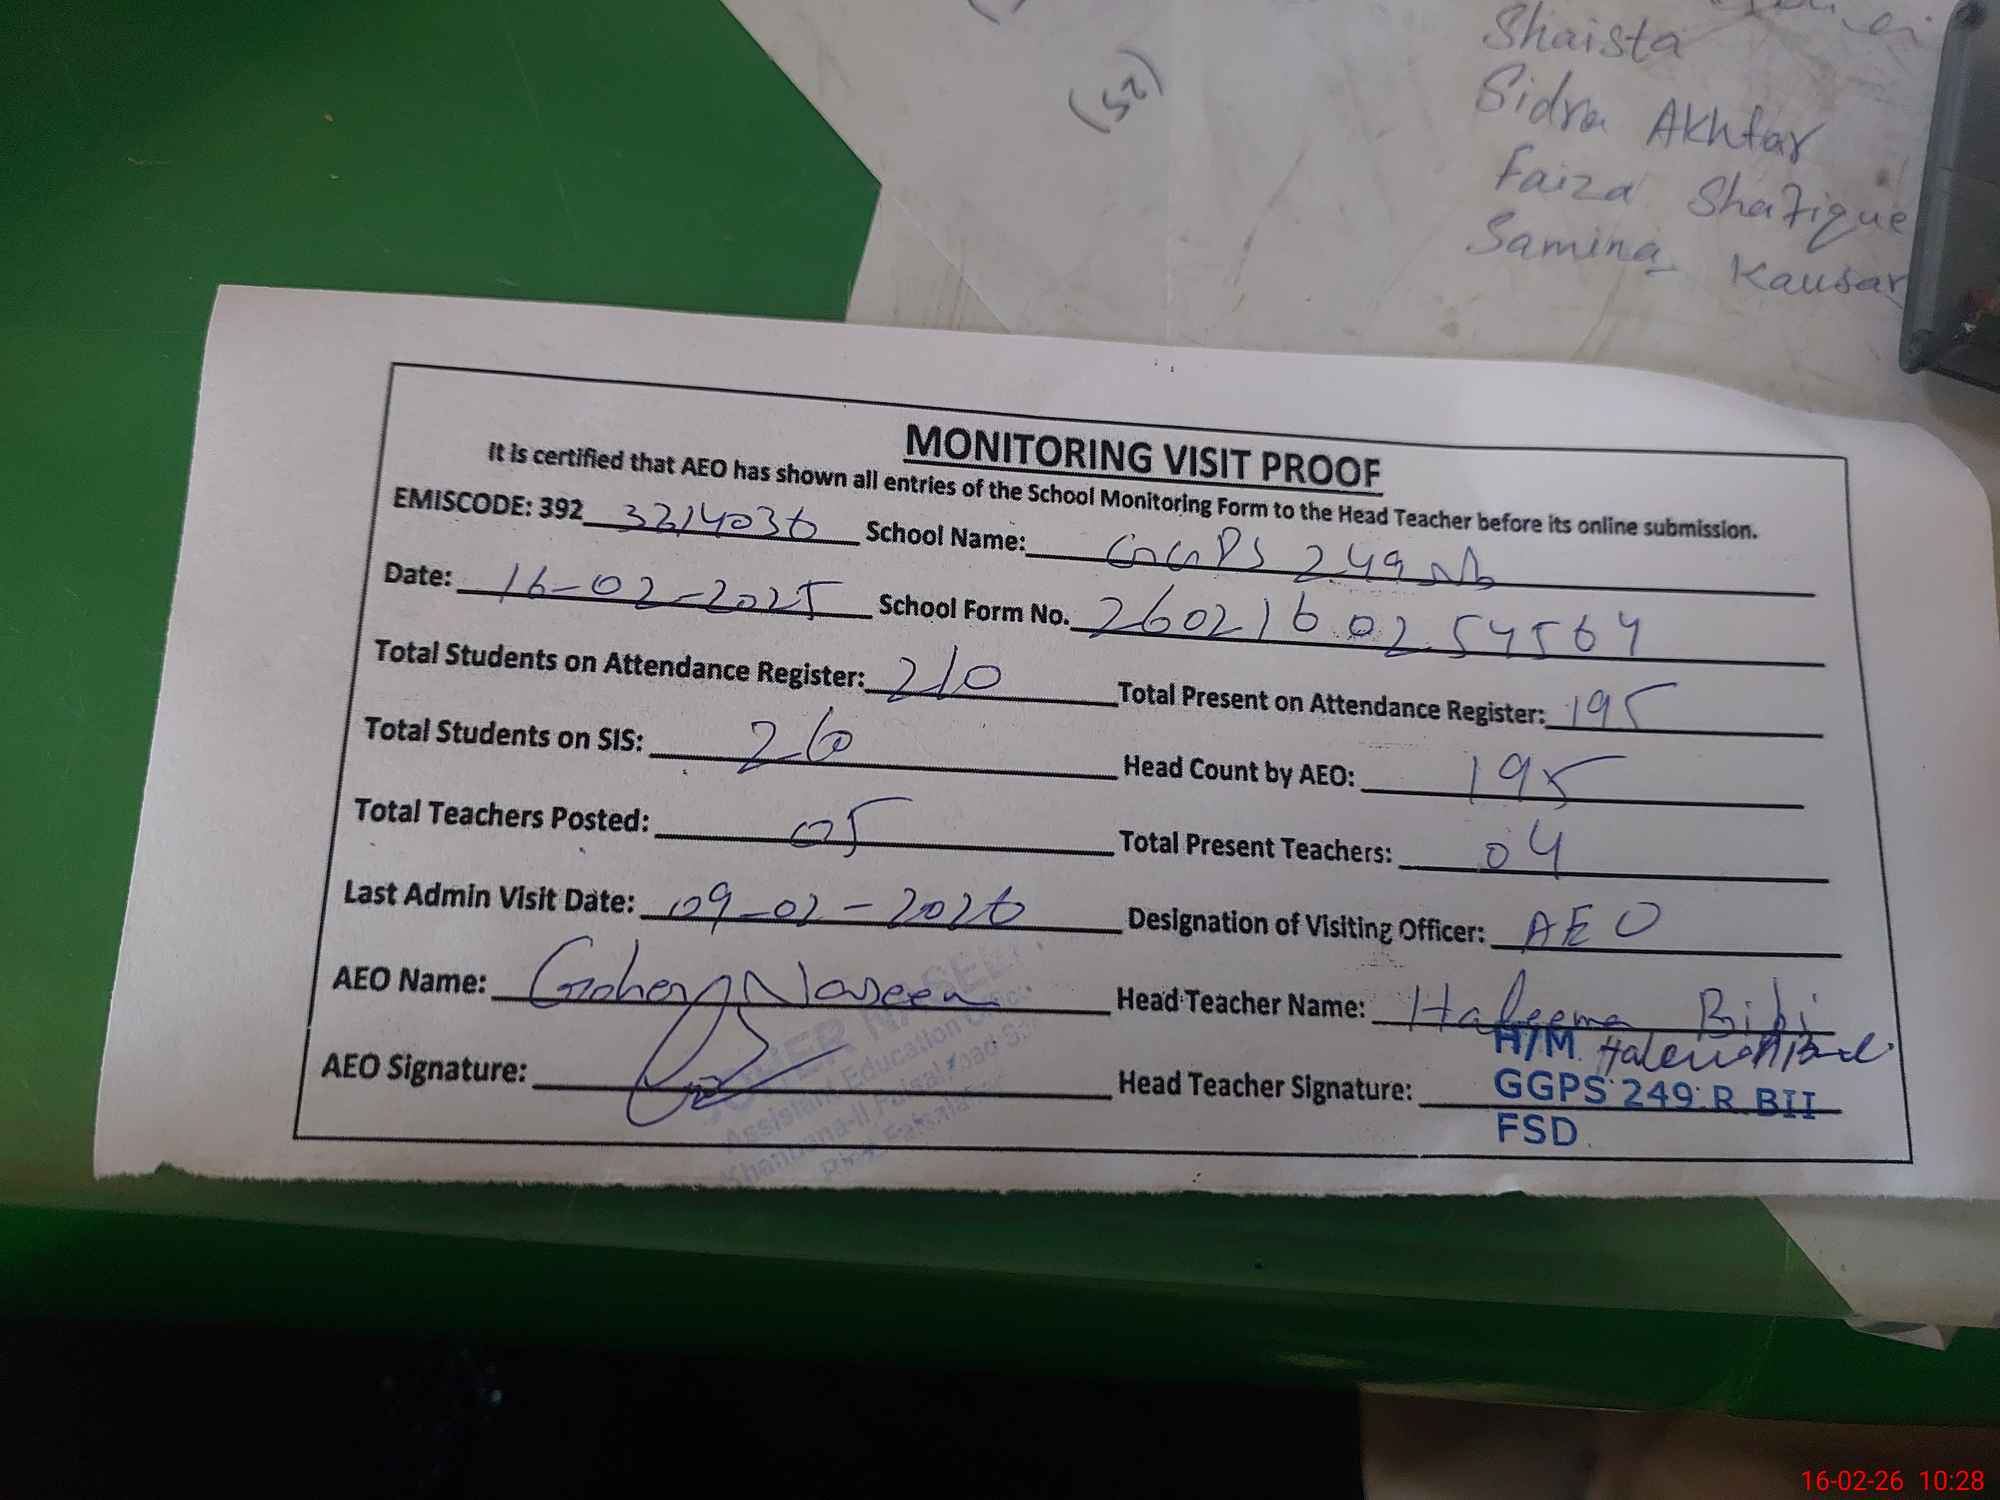 Shaista
Sidra Akhtar
Faiza Shafique
Samina Kausar
(52)
MONITORING VISIT PROOF
It is certified that AEO has shown all entries of the School Monitoring Form to the Head Teacher before its online submission.
EMISCODE: 392 3314036 School Name: GGPS 249 RB
Date: 16-02-2025 School Form No. 26021602 54564
Total Students on Attendance Register: 210 Total Present on Attendance Register: 195
Total Students on SIS: 210 Head Count by AEO: 195
Total Teachers Posted: 05 Total Present Teachers: 04
Last Admin Visit Date: 09-02-2026 Designation of Visiting Officer: AEO
AEO Name: Goher Naseem Head Teacher Name: Haleema Bibi
AEO Signature: Head Teacher Signature:
H/M
GGPS 249 R BII
FSD
Assistant Education
16-02-26 10:28